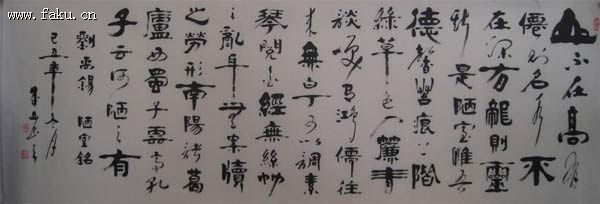 www.faku.cn
山不在高有
僊則名水不
在深有龍則靈
斯是陋室唯吾
德馨苔痕上階
綠草色入簾青
談笑有鴻儒往
來無白丁可以調素
琴閱金經無絲竹
之亂耳無案牘
之勞形南陽諸葛
廬西蜀子雲亭孔
子云何陋之有
劉禹錫 陋室銘
己丑年